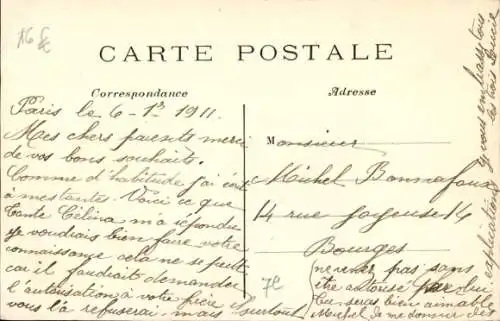 CARTE POSTALE
Correspondance
Adresse
Paris le 6-1er 1911.
Mes chers parents merci
de vos bons souhaits.
Comme d'habitude j'ai écrit
à mes tantes. Voici ce que
tante Célina m'a répondu
je voudrais bien faire votre
connaissance cela ne se peut
car il faudrait demander
l'autorisation à votre père il
vous l'a refuserai, mais surtout
ne venez pas sans
être autorisé par lui
tu serais bien aimable
Michel de me donner des
explications
je vous embrasse tous
Monsieur
Michel Bonnafoux
14 rue Joyeuse 14
Bourges
7E